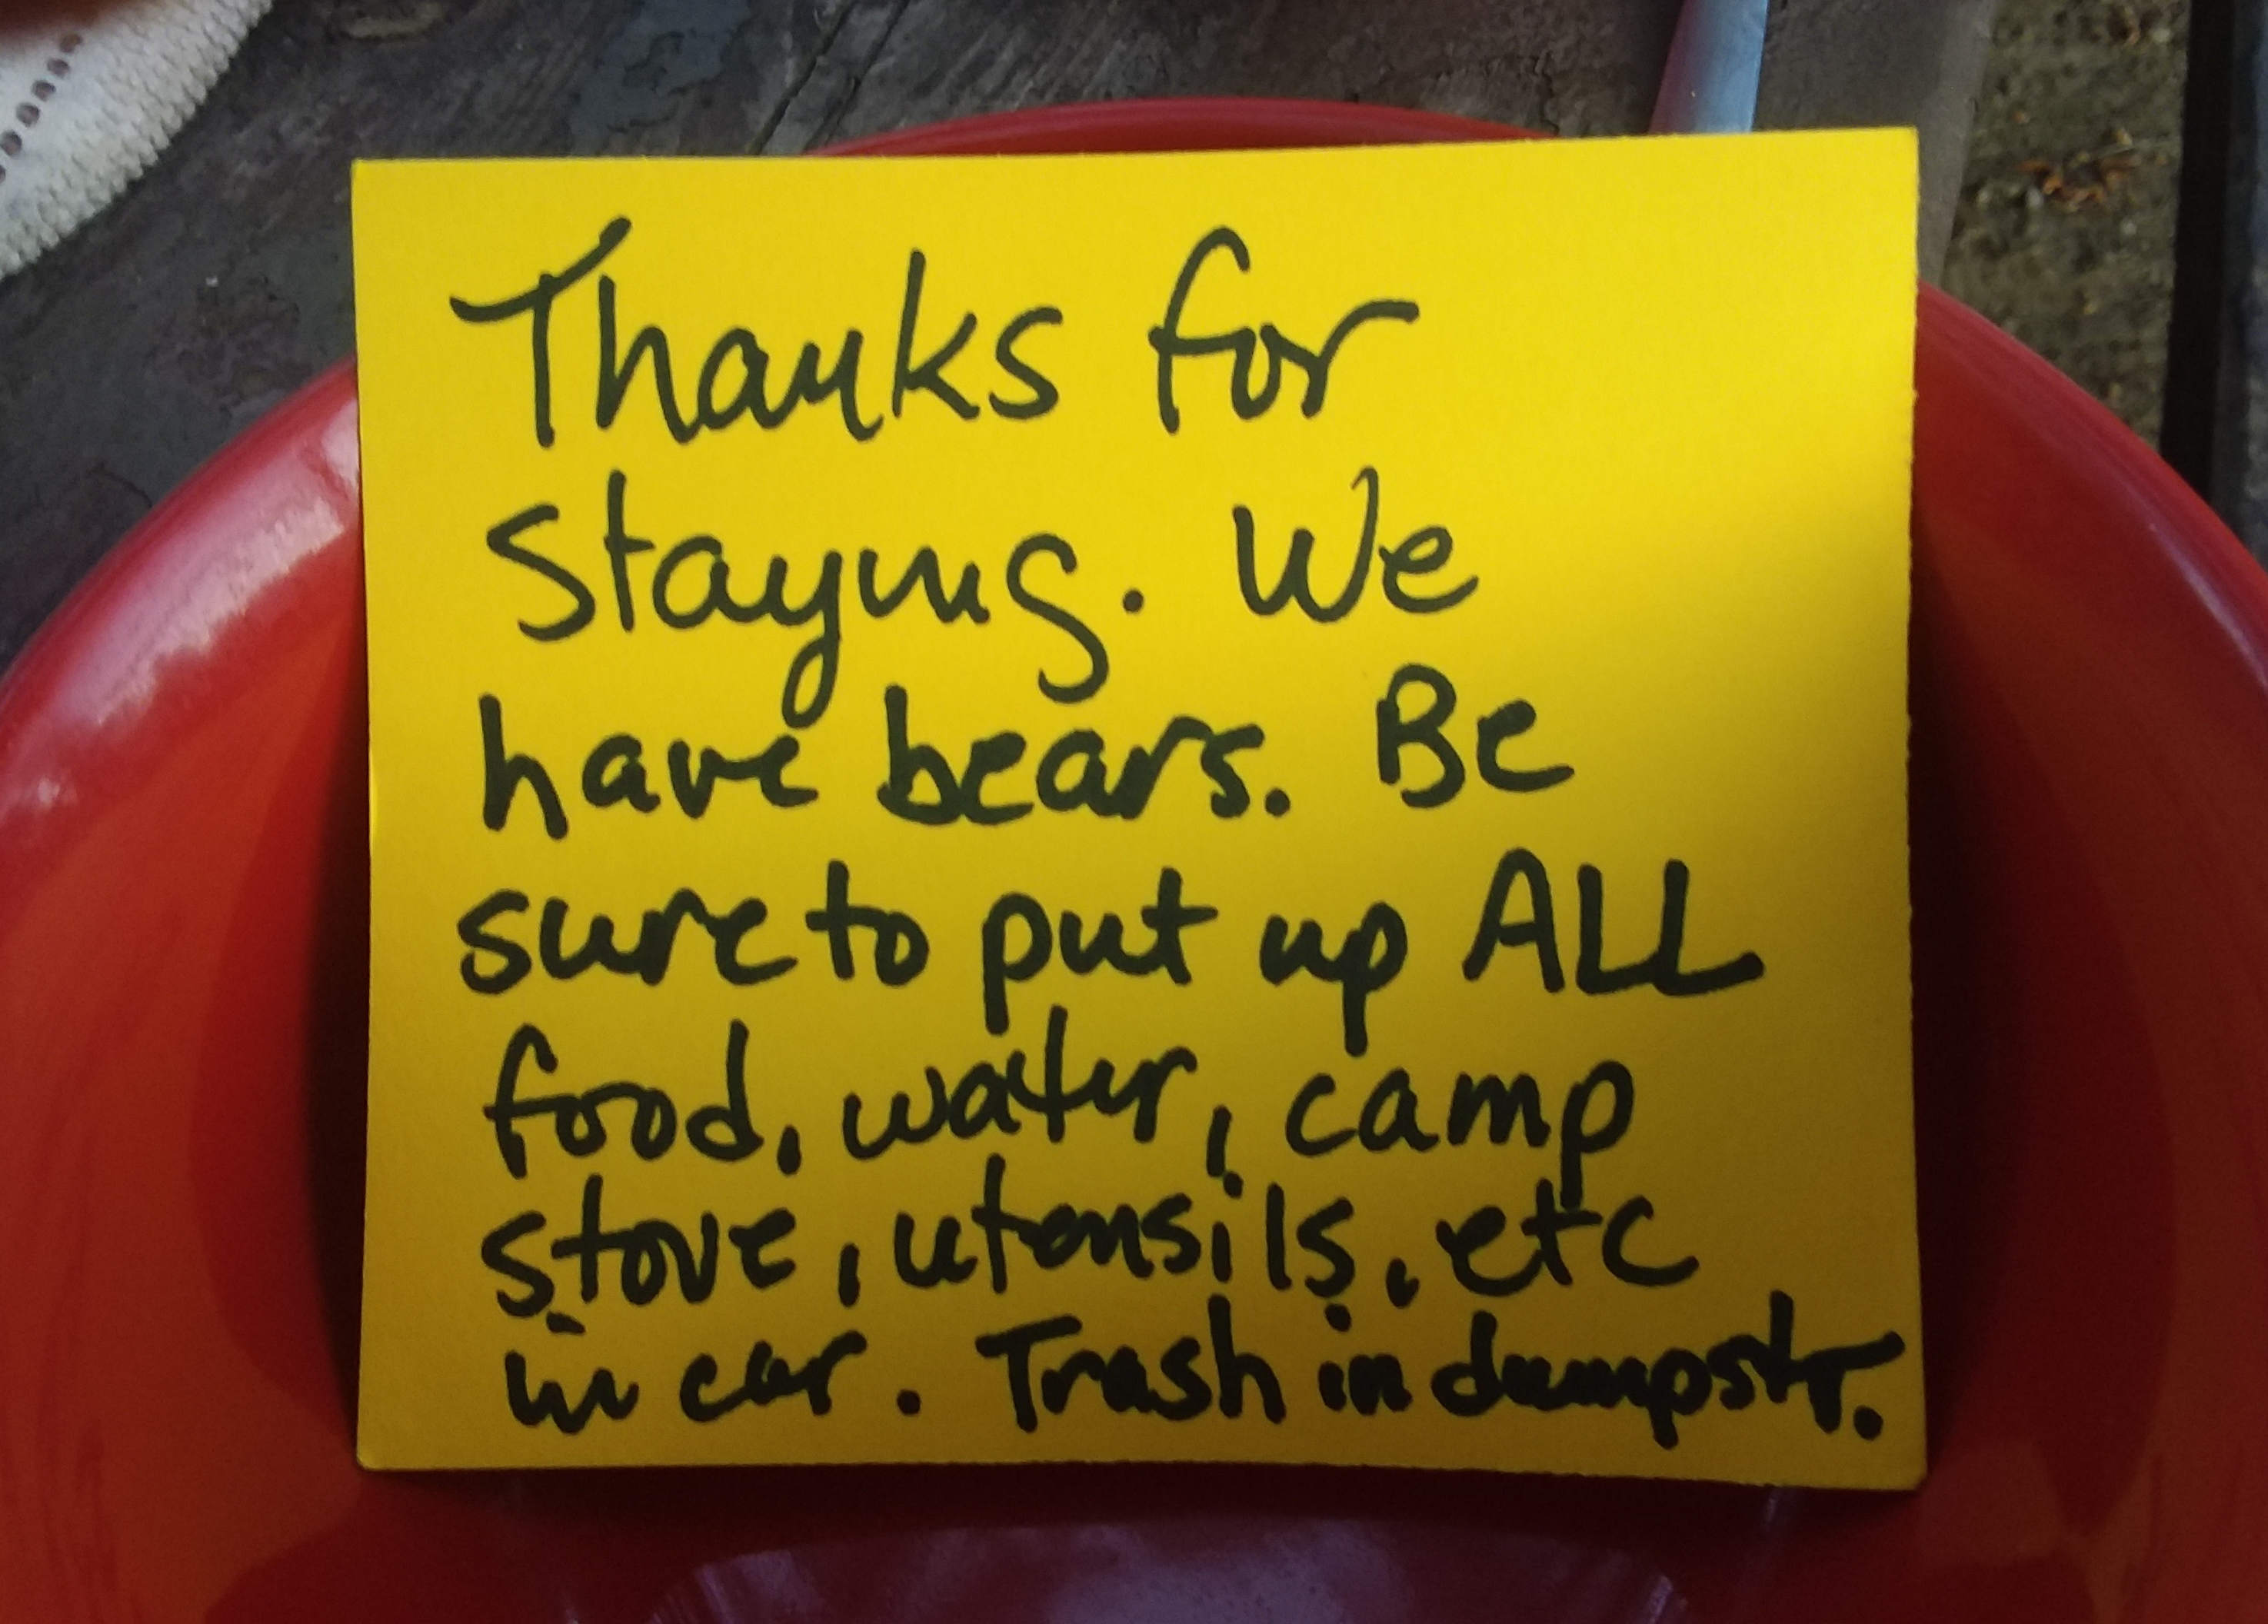 Thanks for
staying. We
have bears. Be
sure to put up ALL
food, water, camp
stove, utensils, etc
in car. Trash in dumpstr.